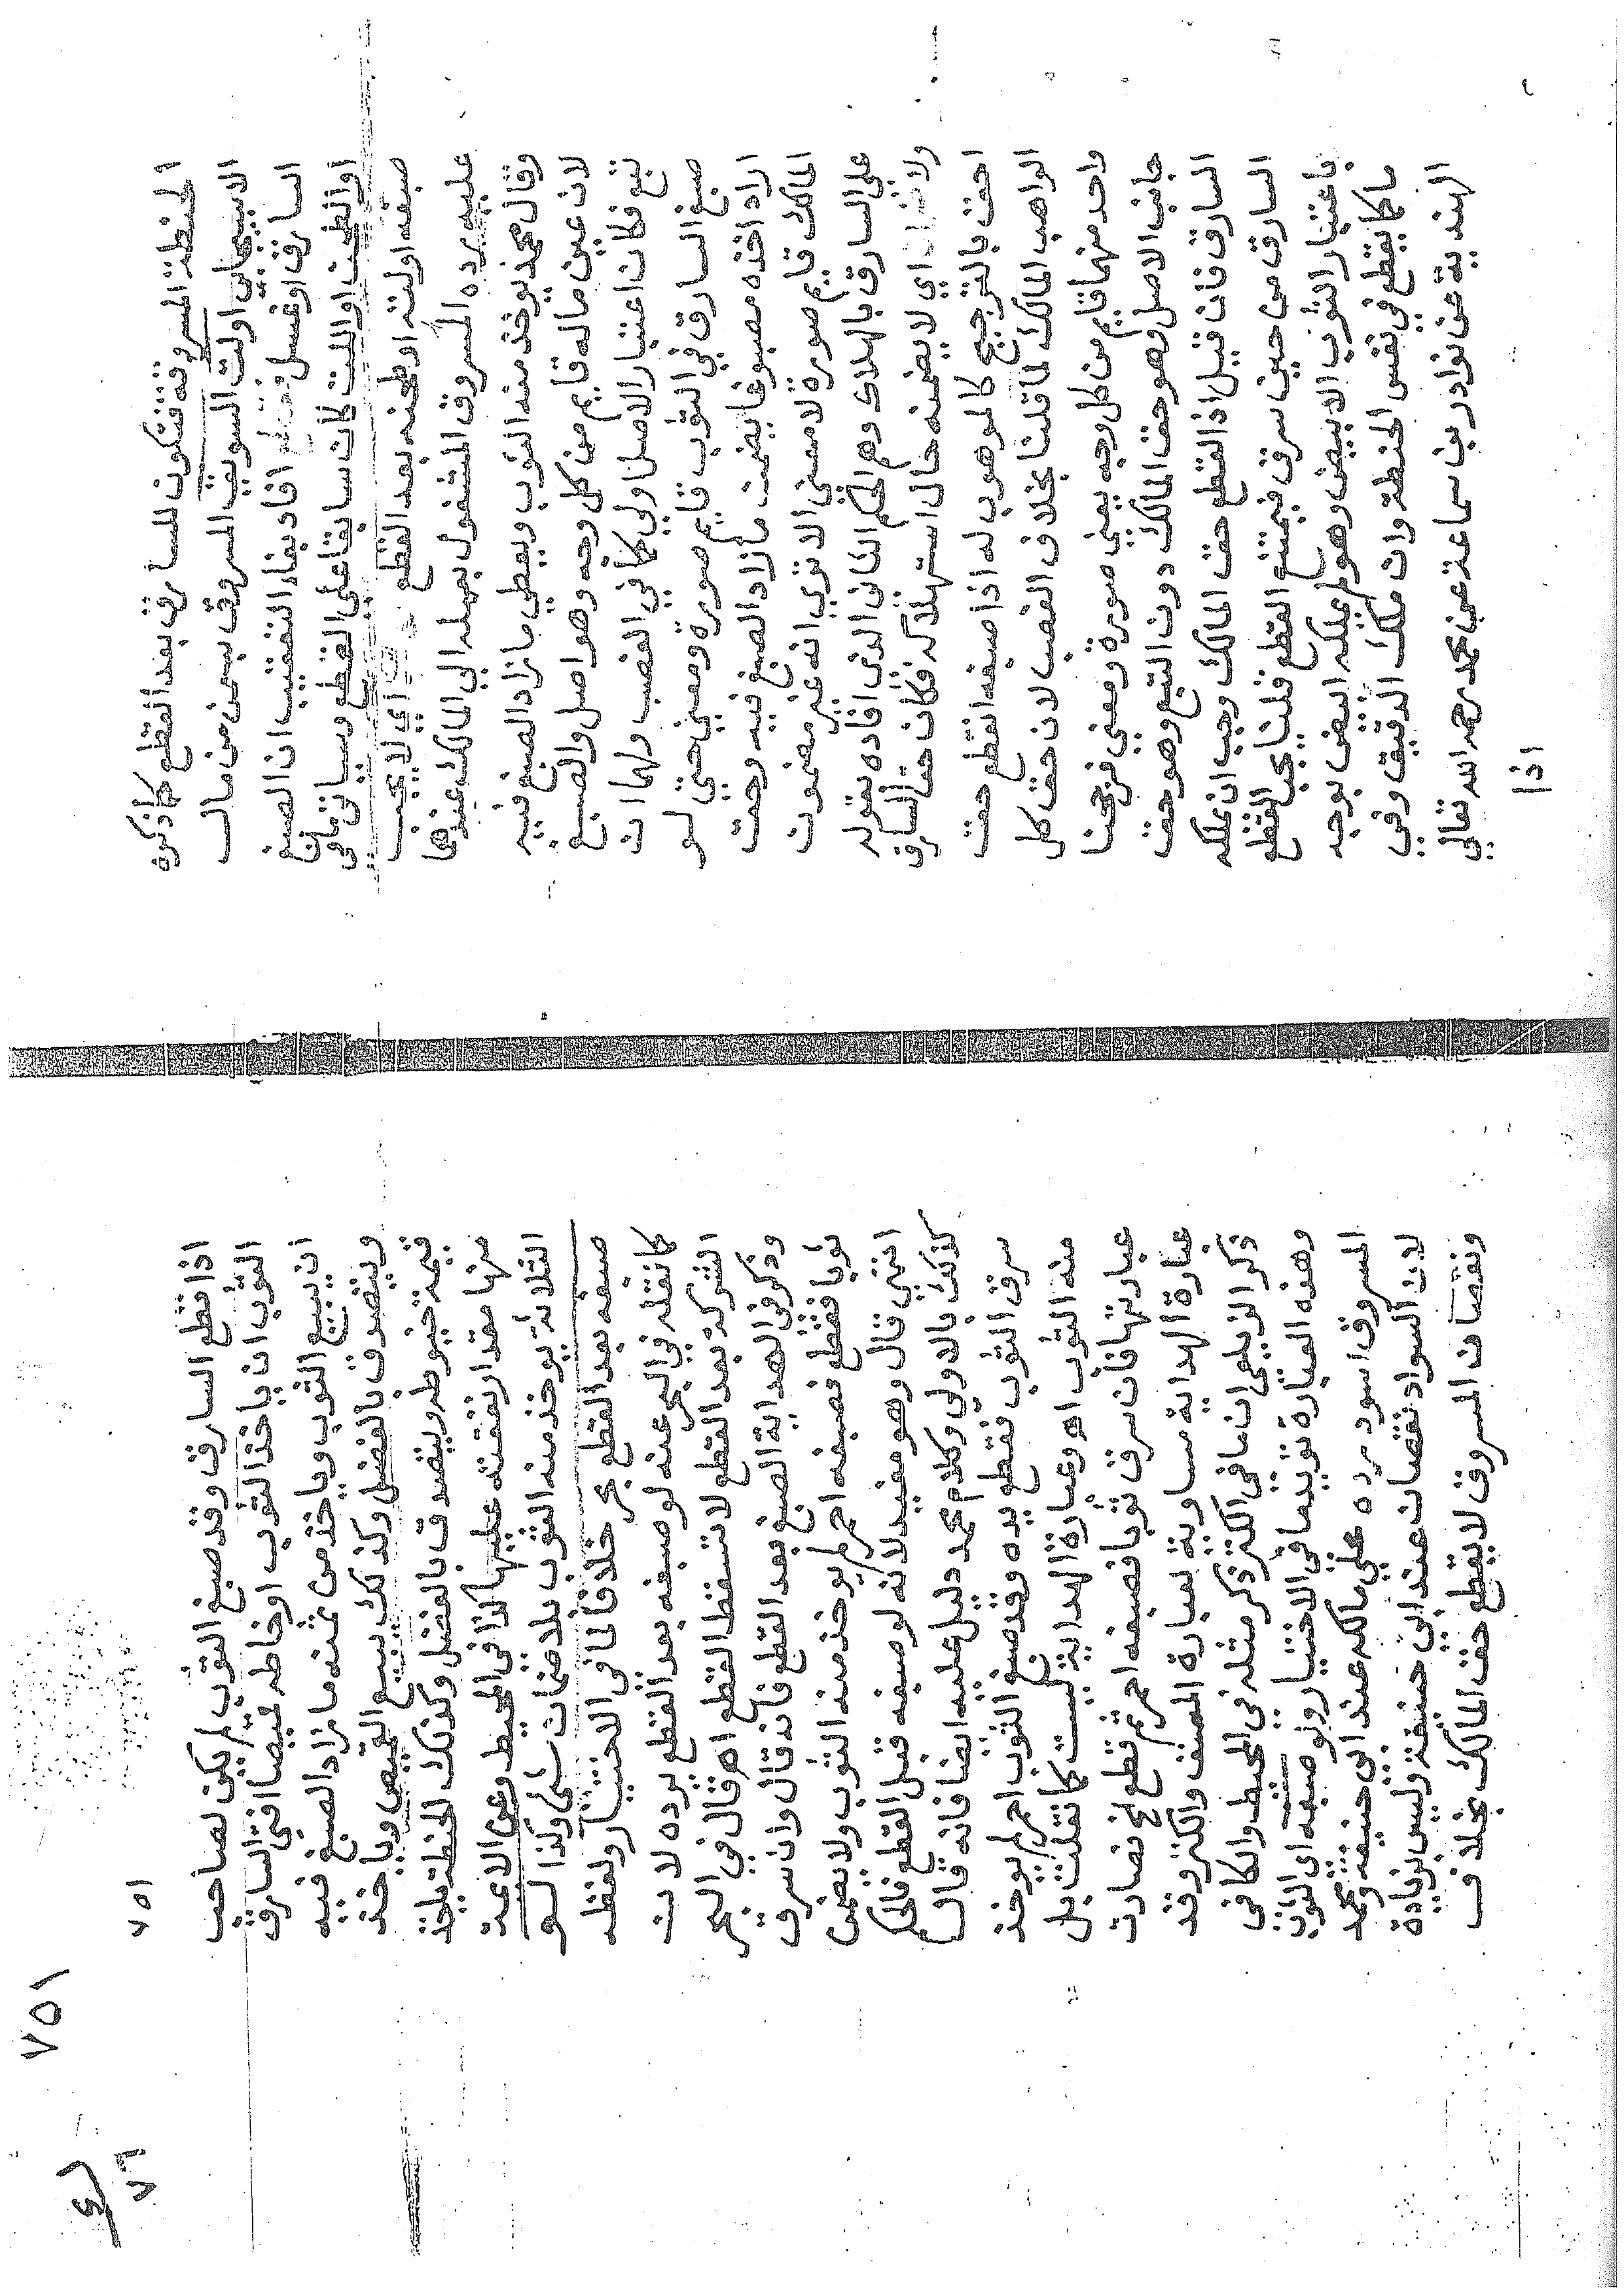 الحنطة المسروقة فتكون للسارق بعد القطع كما ذكره
الاسبيجابي اولت السويق المسروق بسمن من مال
السارق او غسل افاد بفاء التعقيب ان الصبغ
او الطحن او اللت كان سابقا على القطع وسياتي ما في
صبغه اولته او طحنه بعد القطع اي لا يجب
عليه رده المسروق المشغول بعمله الي المالك عندهما
وقال محمد يوخذ منه الثوب ويعطي ما زاد الصبغ فيه
لان عين ماله قايم من كل وجه وهو اصل والصبغ
تبع فكان اعتبار الاصل اولي كما في الغصب ولهما ان
صبغ السارق في الثوب قايم صورة ومعني حتي لو
اراد اخذه مصبوغا يضمن ما زاد الصبغ فيه وحق
المالك قايم صورة لا معني الا تري انه غير مضمون
على السارق بالهلاك وهم الحكم الثاني الذى افاده بقوله
ولا اي لا يضمنه حال استهلاكه فكان حق السارق
احق بالترجيح كالموهوب له اذا صبغه انقطع حق
الواهب المالك لما قلنا بخلاف الغصب لان حق كل
واحد منهما قايم من كل وجه يعني صورة ومعني فرجحنا
جانب الاصل وهو حق المالك دون التبع وهو حق
السارق فان قيل اذا انقطع حق المالك وجب ان يملكه
السارق من حين سرق فيمتنع القطع قلنا يجب القطع
باعتبار الثوب الابيض وهو لم يملكه ابيض بوجه
ما كما يقطع في نفس الحنطة وان ملك الدقيق وفي
الهندية عن نوادر بن سماعة عن محمد رحمه الله تعالي
اذا
٧٥١
٧٥١
٧٦
اذا قطع السارق وقد صبغ الثوب لم يكن لصاحب
الثوب ان ياخذ الثوب او خاطه قميصا افتي السارق
ان يبيع الثوب وياخذ من ثمنه ما زاد الصبغ فيه
ويتصدق بالفضل وكذلك يبيع القميص وياخذ
قيمة خيوطه ويتصدق بالفضل وكذلك الحنطة ياخذ
منها مقدار نفقته عليها كذا في المحيط وعن الايمة
الثلاثة يوخذ منه الثوب بلا ضمان شي وكذا لو
صبغه بعد القطع بحر خلافا لما في الاختيار ولفظه
كما نقله في البحر عنه لو صبغه بعد القطع يرده لان
الشركة بعد القطع لا تسقط القطع اهـ قال في البحر
وذكر في الهداية الصبغ بعد القطع فانه قال وان سرق
ثوبا فقطع فصبغه احمر لم يوخذ منه الثوب ولا يضمن
انتهي قال وهو مفيد لانه لو صبغه قبل القطع فالحكم
كذلك بالاولي وكلام محمد دليل عليه ايضا فانه قال
سرق الثوب فقطع يده وقد صبغ الثوب احمر لم يوخذ
منه الثوب اهـ وعبارة الهداية ليست كما نقلت بل
عبارتها فان سرق ثوبا فصبغه احمر ثم قطع الخ فصارت
عبارة الهداية مساوية لعبارة المصنف والكنز وقد
ذكر الزيلعي ان ما في الكنز ذكر مثله في المحيط والكافى
وهذه العبارة تويد ما في الاختيار ولو صبغه اي الثوب
المسروق اسود رده علي مالكه عند ابي حنيفة ومحمد
لان السواد نقصان عند ابي حنيفة وليس بزيادة
ونقصان المسروق لا يقطع حق المالك بخلاف